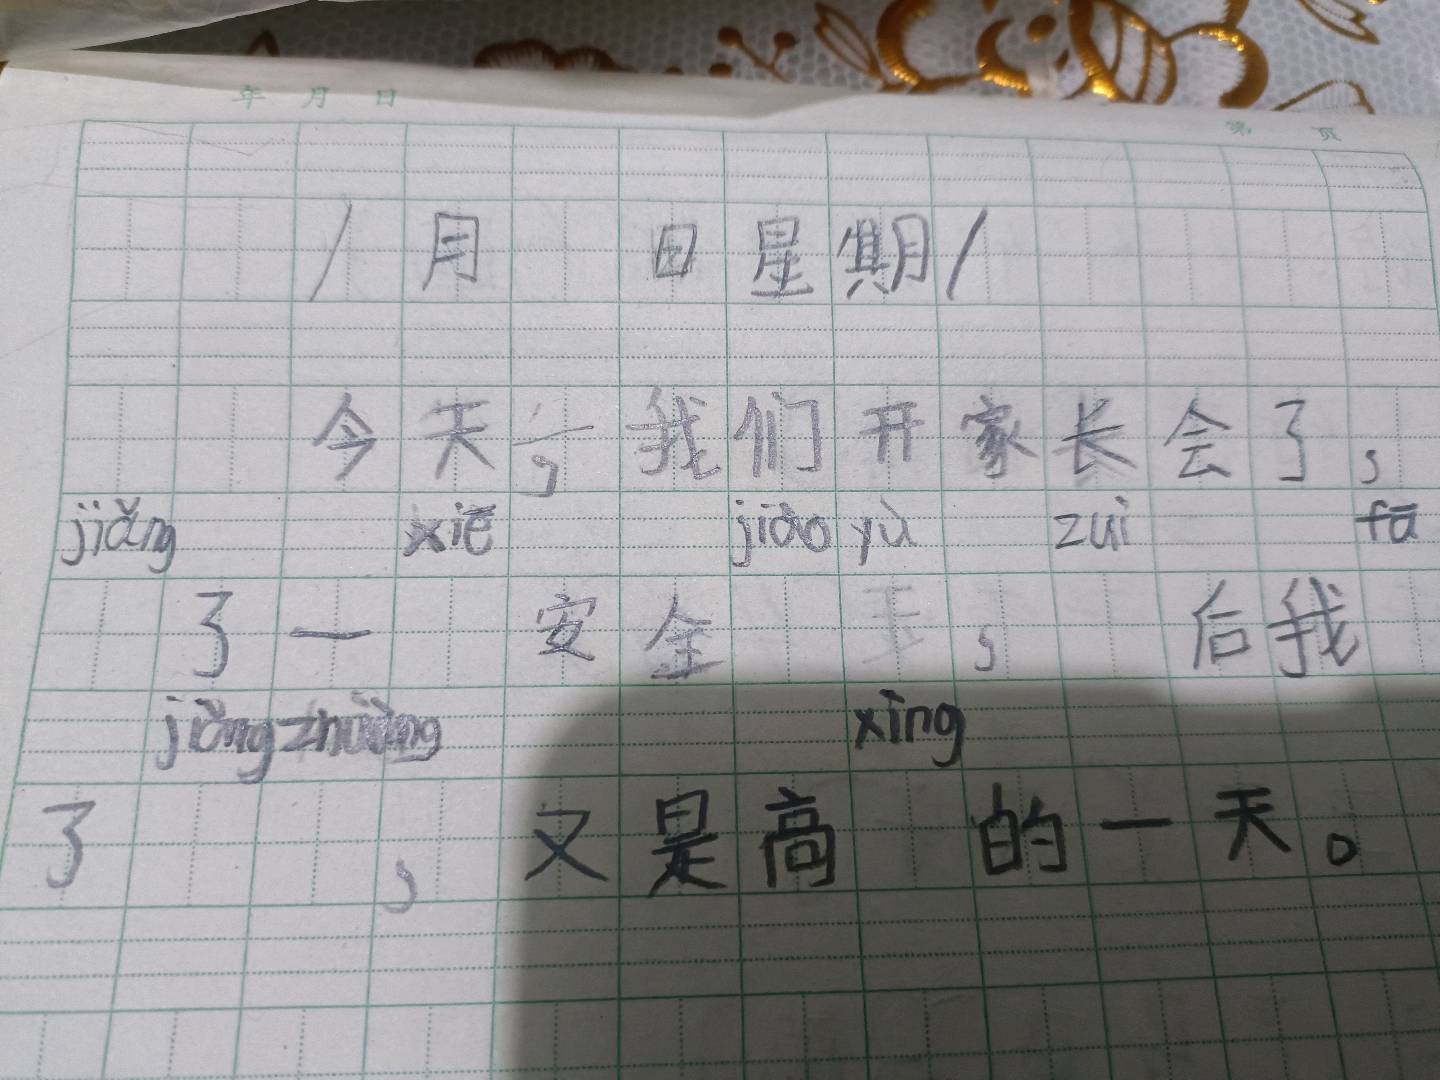 年 月 日
第 页
1月 日星期1
今天，我们开家长会了，
jiǎng xiē jiào yù zuì fā
了一 安全 玉， 后我
jiǎng zhuàng xìng
了 ，又是高 的一天。